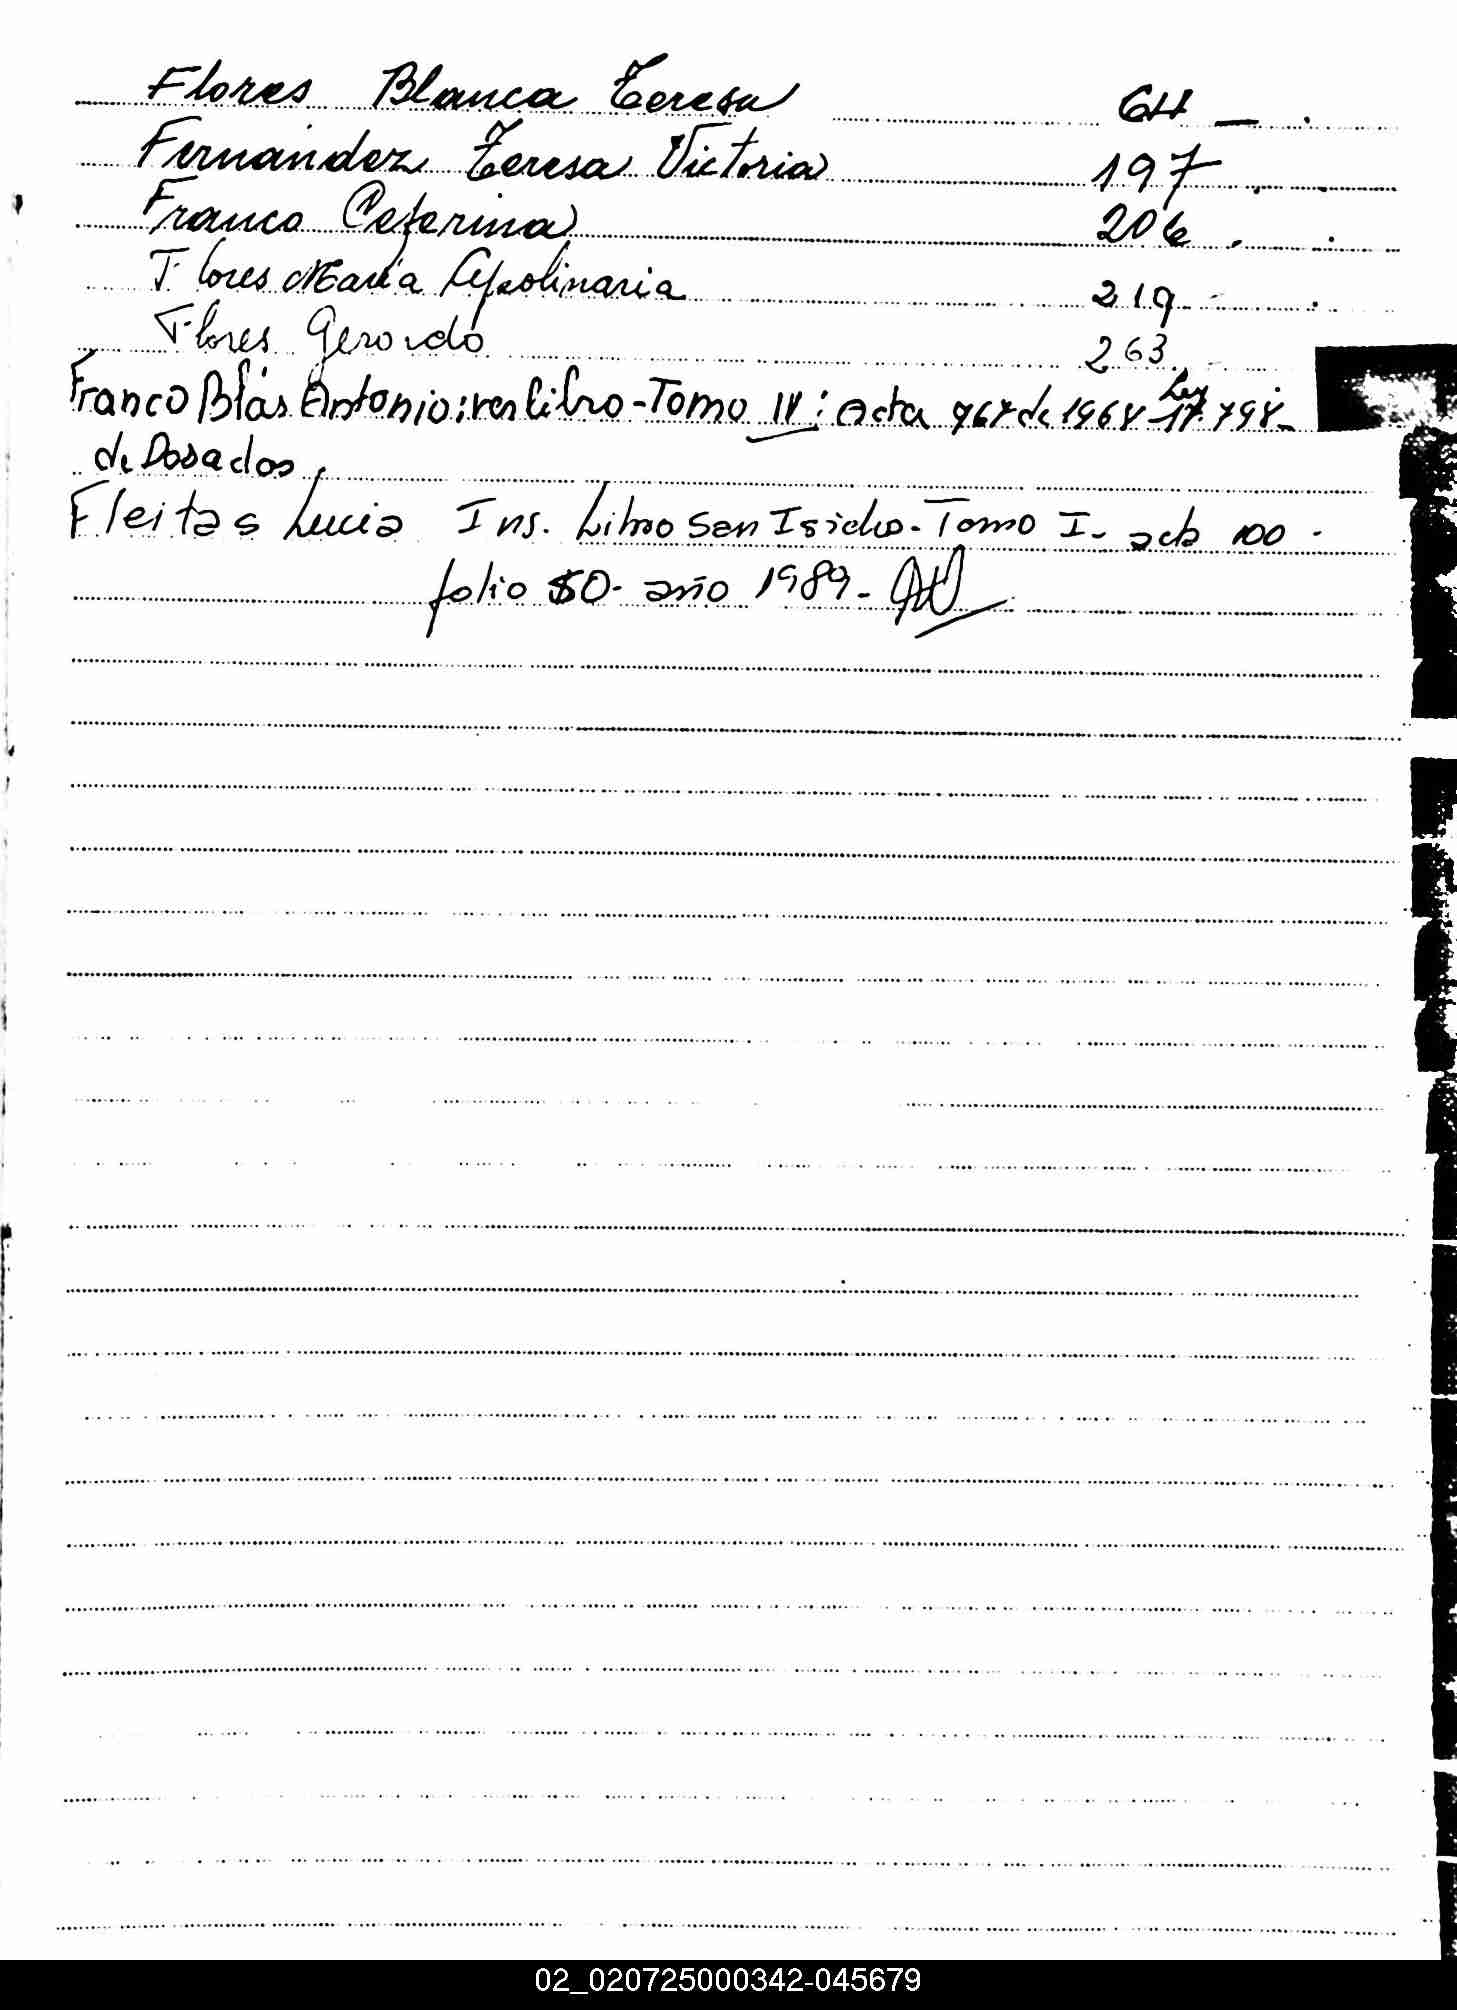 Flores Blanca Teresa 64 -
Fernández Teresa Victoria 197
Franco Ceferina 206
Flores María Apolinaria 219 -
Flores Gerardo 263
Franco Blás Antonio: ver Libro - Tomo IV : Acta 968 de 1968 Ley 17.798 -
de Posadas
Fleitas Lucia Ins. Libro San Isidro - Tomo I - acta 100 -
folio 50 - año 1989 -
02_020725000342-045679